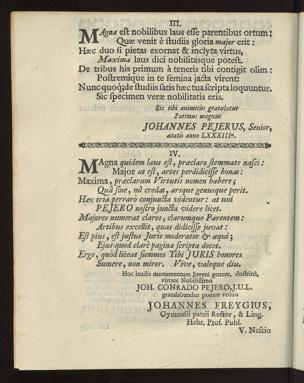 III.
MAgna est nobilibus laus esse parentibus ortum:
Quæ venit è studiis gloria major erit:
Hæc duo si pietas exornat & inclyta virtus,
Maxima laus dici nobilitasque potest.
De tribus his primum à teneris tibi contigit olim:
Postremique in te semina jacta virent:
Nunc quoq; de studiis satis hæc tua scripta loquuntur.
Sic specimen veræ nobilitatis eris.
Sic tibi animitùs gratulatur
Patruus magnus
JOHANNES PEJERUS, Senior,
ætatis anno LXXXIIIº.
IV.
MAgna quidem laus est, præclaro stemmate nasci:
Major at est, artes perdidicisse bonas:
Maxima, præclarum Virtutis nomen habere;
Quâ sine, mî credas, arsque genusque perit.
Hæc tria perrarò conjuncta videntur: at uni
PEJERO nostro juncta videre licet.
Majores numerat claros, clarumque Parentem:
Artibus excellit, quas didicisse juvat:
Est pius, est justus Juris moderator & æqui;
Ejus quod clarè pagina scripta docet.
Ergo, quòd liceat summos Tibi JURIS honores
Sumere, non miror. Vive, valeque diu.
Hoc laudis monumentum Juveni genere, doctrinâ,
virtute Nobilissimo
JOH. CONRADO PEJERO, J.U.L.
gratulabundus ponere voluit
JOHANNES FREYGIUS,
Gymnasii patrii Rector, & Ling.
Hebr. Prof. Publ.
V. Nescio